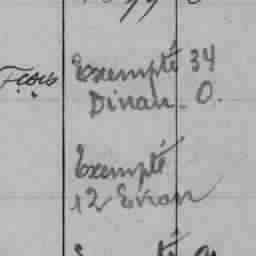 Exempté 34
Dinan. O.
Exempté
12 Evran